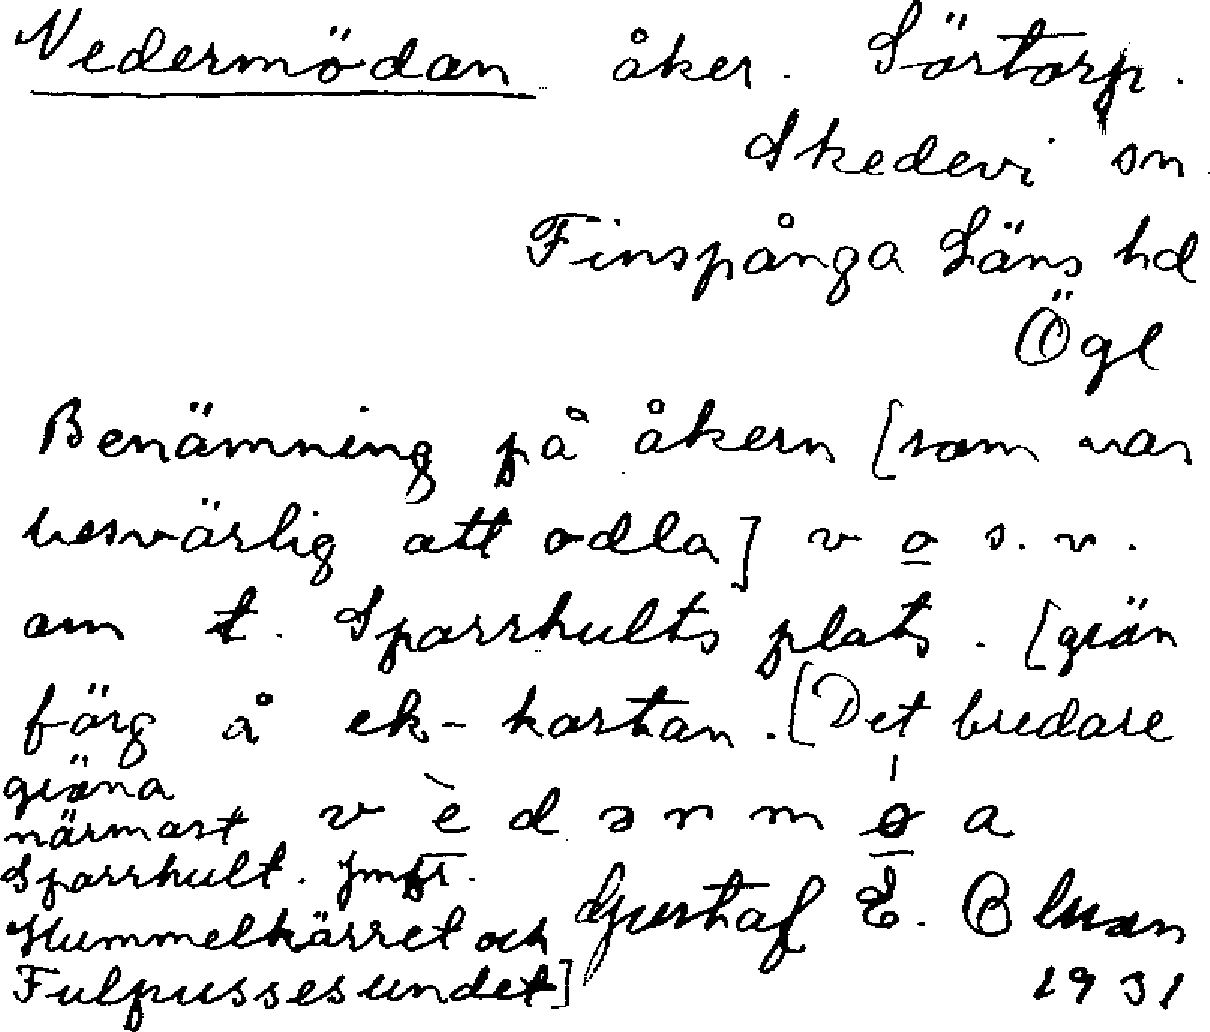 Nedermödan åker. Sörtorp.
Skedevi sn.
Finspånga Läns hd
Ögl
Benämning på åkern [som var
besvärlig att odla] v o s.v.
om t. Sporrhults plats. [grön
färg å ek-kartan. [Det bredare
gröna
närmast v è d ə r m ø a
Sporrhult. Jmfr.
Hummelkärret och Gustaf E.
Fulpussesundet] 1931